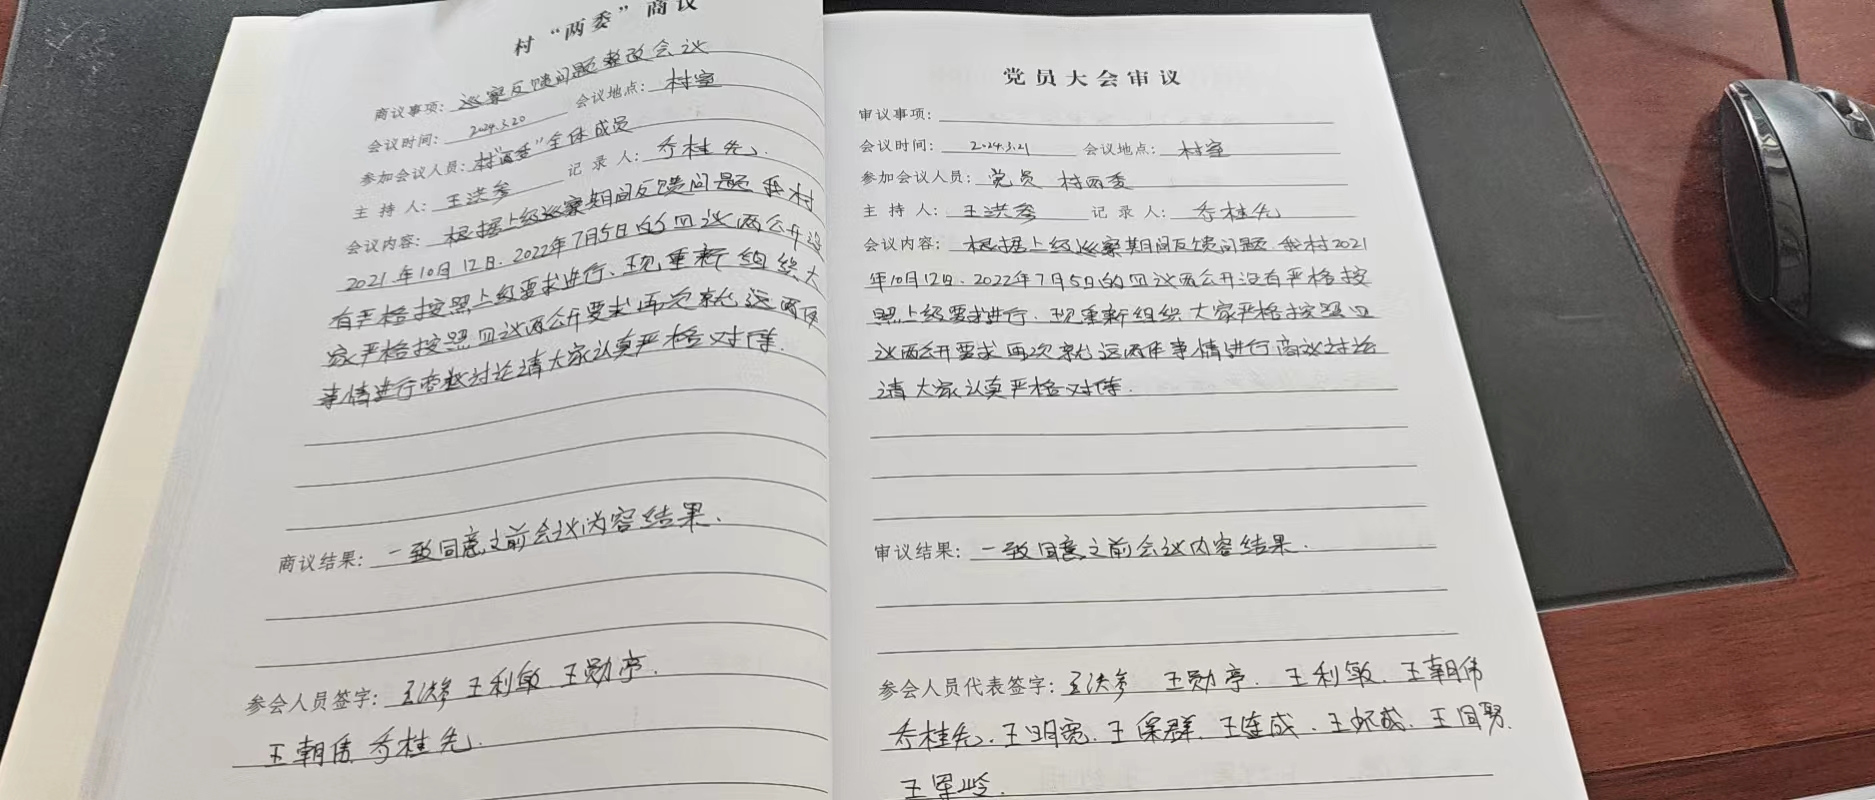 村“两委”商议
商议事项：巡察反馈问题整改会议
会议时间：2024.3.20 会议地点：村室
参加会议人员：村“两委”全体成员
主持人：王洪参 记录人：乔桂先.
会议内容：根据上级巡察期间反馈问题 我村
2021年10月12日、2022年7月5日的四议两公开没
有严格按照上级要求进行、现重新组织大
家严格按照四议两公开要求再次就这两件
事情进行商议讨论请大家认真严格对待.
商议结果：一致同意之前会议内容结果.
参会人员签字：王洪参 王利敏 王勋亭.
王朝伟 乔桂先.
党员大会审议
审议事项：
会议时间：2024.3.21 会议地点：村室
参加会议人员：党员 村两委
主持人：王洪参 记录人：乔桂先
会议内容：根据上级巡察期间反馈问题 我村2021
年10月12日、2022年7月5日的四议两公开没有严格按
照上级要求进行、现重新组织大家严格按照四
议两公开要求再次就这两件事情进行商议讨论
请大家认真严格对待.
审议结果：一致同意之前会议内容结果.
参会人员代表签字：王洪参 王勋亭. 王利敏. 王朝伟
乔桂先. 王明宽. 王保群. 王连成. 王怀成. 王国
王军岭.